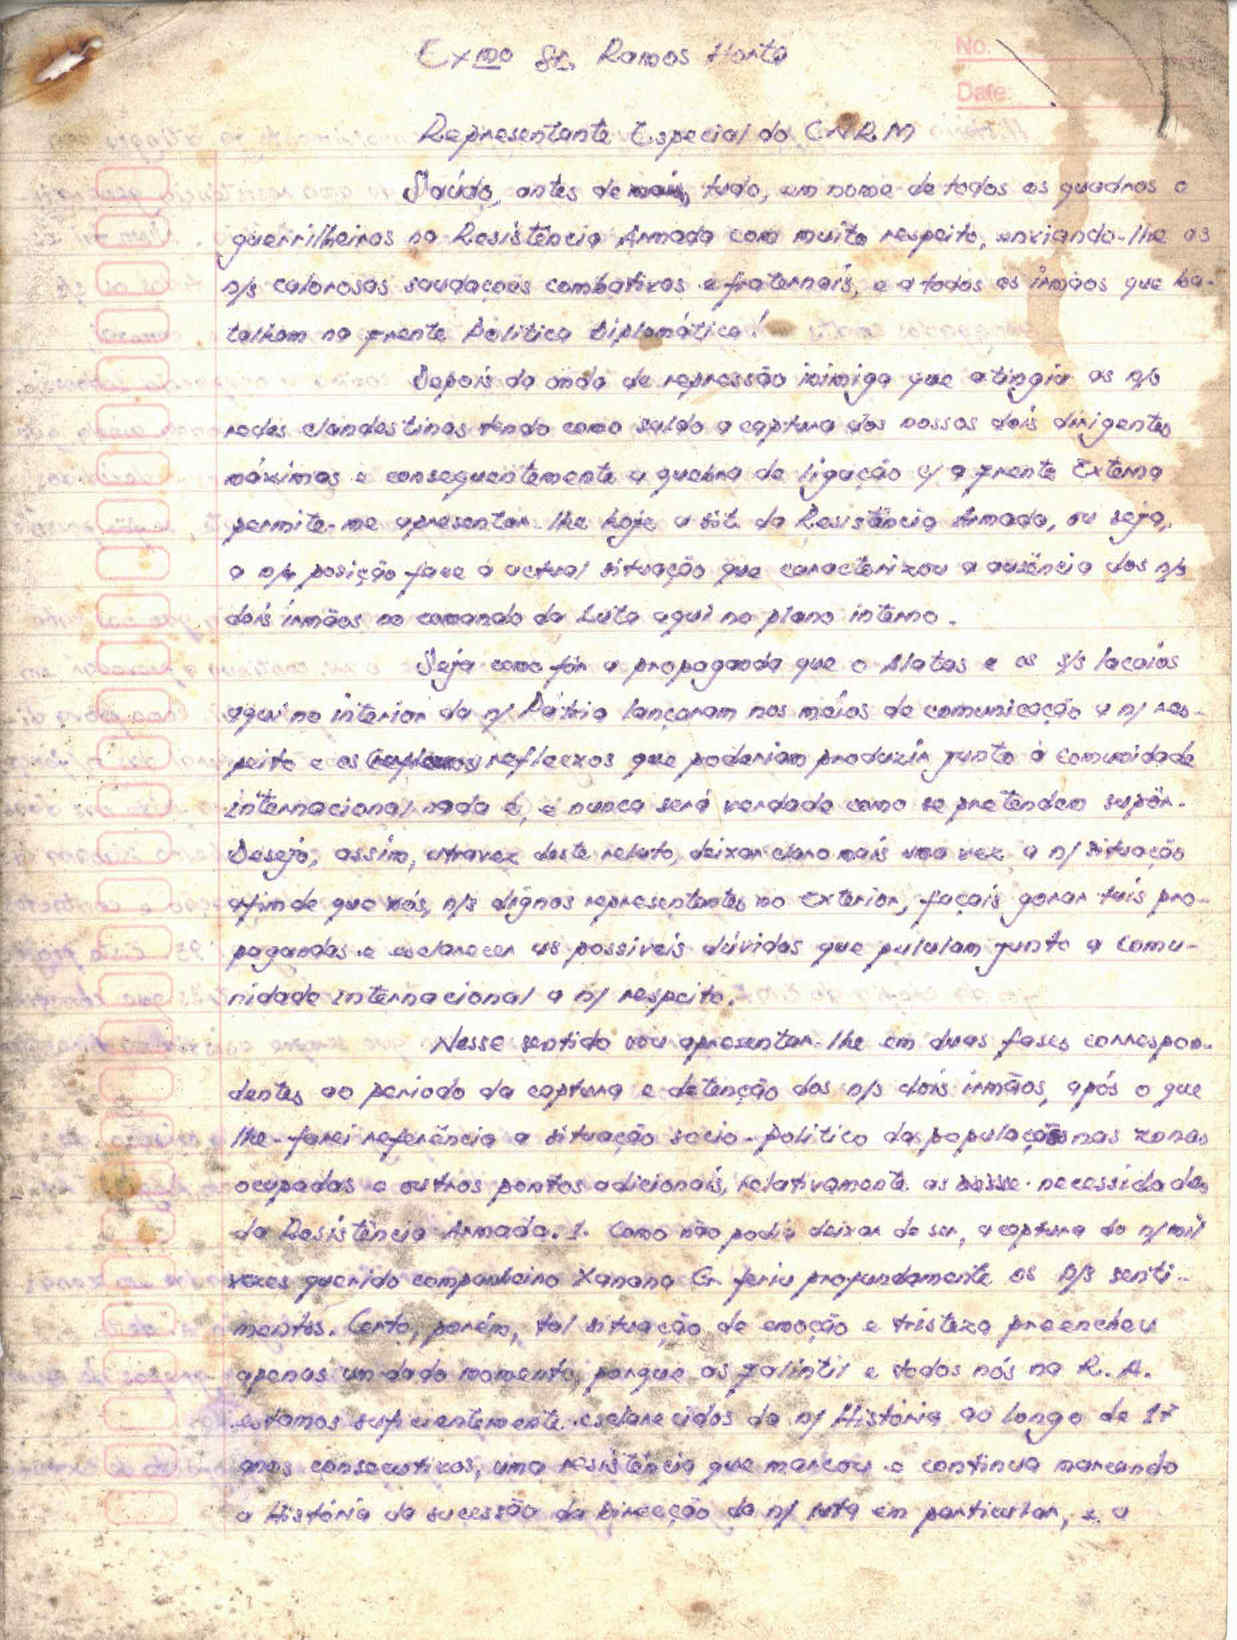 Exmo Sr. Ramos Horta
No.
Date:
Representante Especial do CNRM
Saúdo, antes de tudo, em nome de todos os quadros e
guerrilheiros na Resistência Armada com muito respeito, enviando-lhe as
n/s calorosas saudações combativas e fraternais, e a todos os irmãos que ba-
talham na frente Política Diplomática!
Depois da onda de repressão inimiga que atingiu as n/s
redes clandestinas tendo como saldo a captura dos nossos dois dirigentes
máximos e consequentemente a quebra de ligação c/ a Frente Externa
permite-me apresentar-lhe hoje a sit. da Resistência Armada, ou seja,
a n/ posição face a actual situação que caracterizou a ausência dos n/s
dois irmãos no comando da Luta aqui no plano interno.
Seja como fôr a propaganda que o Alatas e os s/s lacaios
aqui no interior da n/ Pátria lançaram nos meios de comunicação a n/ res-
peito e os reflexos que poderiam produzir junto à comunidade
internacional nada é, e nunca será verdade como se pretendem supôr.
Desejo, assim, atravez deste relato, deixar claro mais uma vez a n/ situação
afim de que vós, n/s dignos representantes no exterior, façais gorar tais pro-
pagandas e esclarecer as possíveis dúvidas que pululam junto a Comu-
nidade Internacional a n/ respeito.
Nesse sentido vou apresentar-lhe em duas fases correspon-
dentes ao período da captura e detenção dos n/s dois irmãos, após o que
lhe farei referência a situação socio-político das populações nas zonas
ocupadas e outros pontos adicionais, relativamente as necessidades
da Resistência Armada. 1. Como não podia deixar de ser, a captura do n/ mil
vezes querido companheiro Xanana G. feriu profundamente os n/s senti-
mentos. Certo, porém, tal situação de emoção e tristeza preencheu
apenas um dado momento, porque as Falintil e todos nós na R. A.
estamos suficientemente esclarecidos da n/ História ao longo de 17
anos consecutivos, uma resistência que marcou e continua marcando
a História da sucessão da Direcção da n/ luta em particular, e a